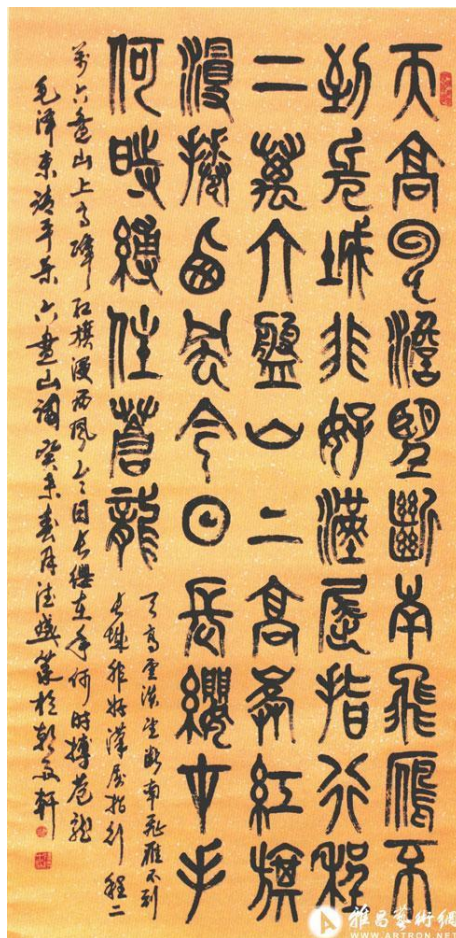 天高云澹望斷南飛雁不
到長城非好漢屈指行程
二萬六盤山上高峰紅旗
漫捲西風今日長纓在手
何時縛住蒼龍
天高雲淡望斷南飛雁不到
長城非好漢屈指行程二
萬六盘山上高峰紅旗漫西風今日長纓在手何時搏蒼龍
毛澤東清平樂六盘山詞癸未春月篆於軒
雅昌藝術網
WWW.ARTRON.NET